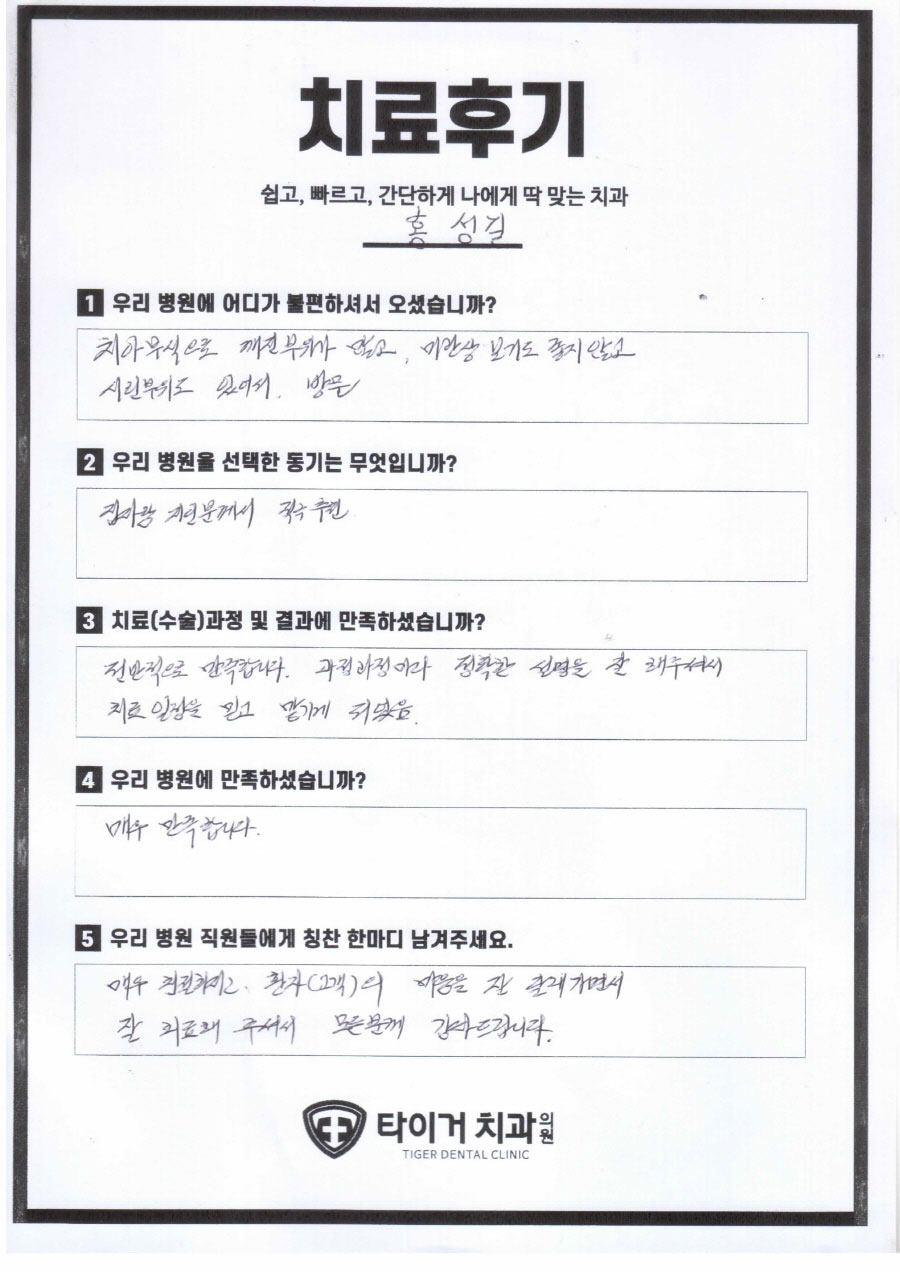 치료후기
쉽고, 빠르고, 간단하게 나에게 딱 맞는 치과
홍성길
1 우리 병원에 어디가 불편하셔서 오셨습니까?
치아부식으로 깨진부위가 많고, 미관상 보기도 좋지않고
시린부위도 있어서. 방문
2 우리 병원을 선택한 동기는 무엇입니까?
지인분께서 적극 추천
3 치료(수술)과정 및 결과에 만족하셨습니까?
전반적으로 만족합니다. 과정과정마다 정확한 설명을 잘 해주셔서
치료 일정을 믿고 맡기게 되었음.
4 우리 병원에 만족하셨습니까?
매우 만족합니다.
5 우리 병원 직원들에게 칭찬 한마디 남겨주세요.
매우 친절하시고, 환자(고객)의 마음을 잘
잘 치료해 주셔서 모든분께 감사드립니다.
타이거 치과의원
TIGER DENTAL CLINIC